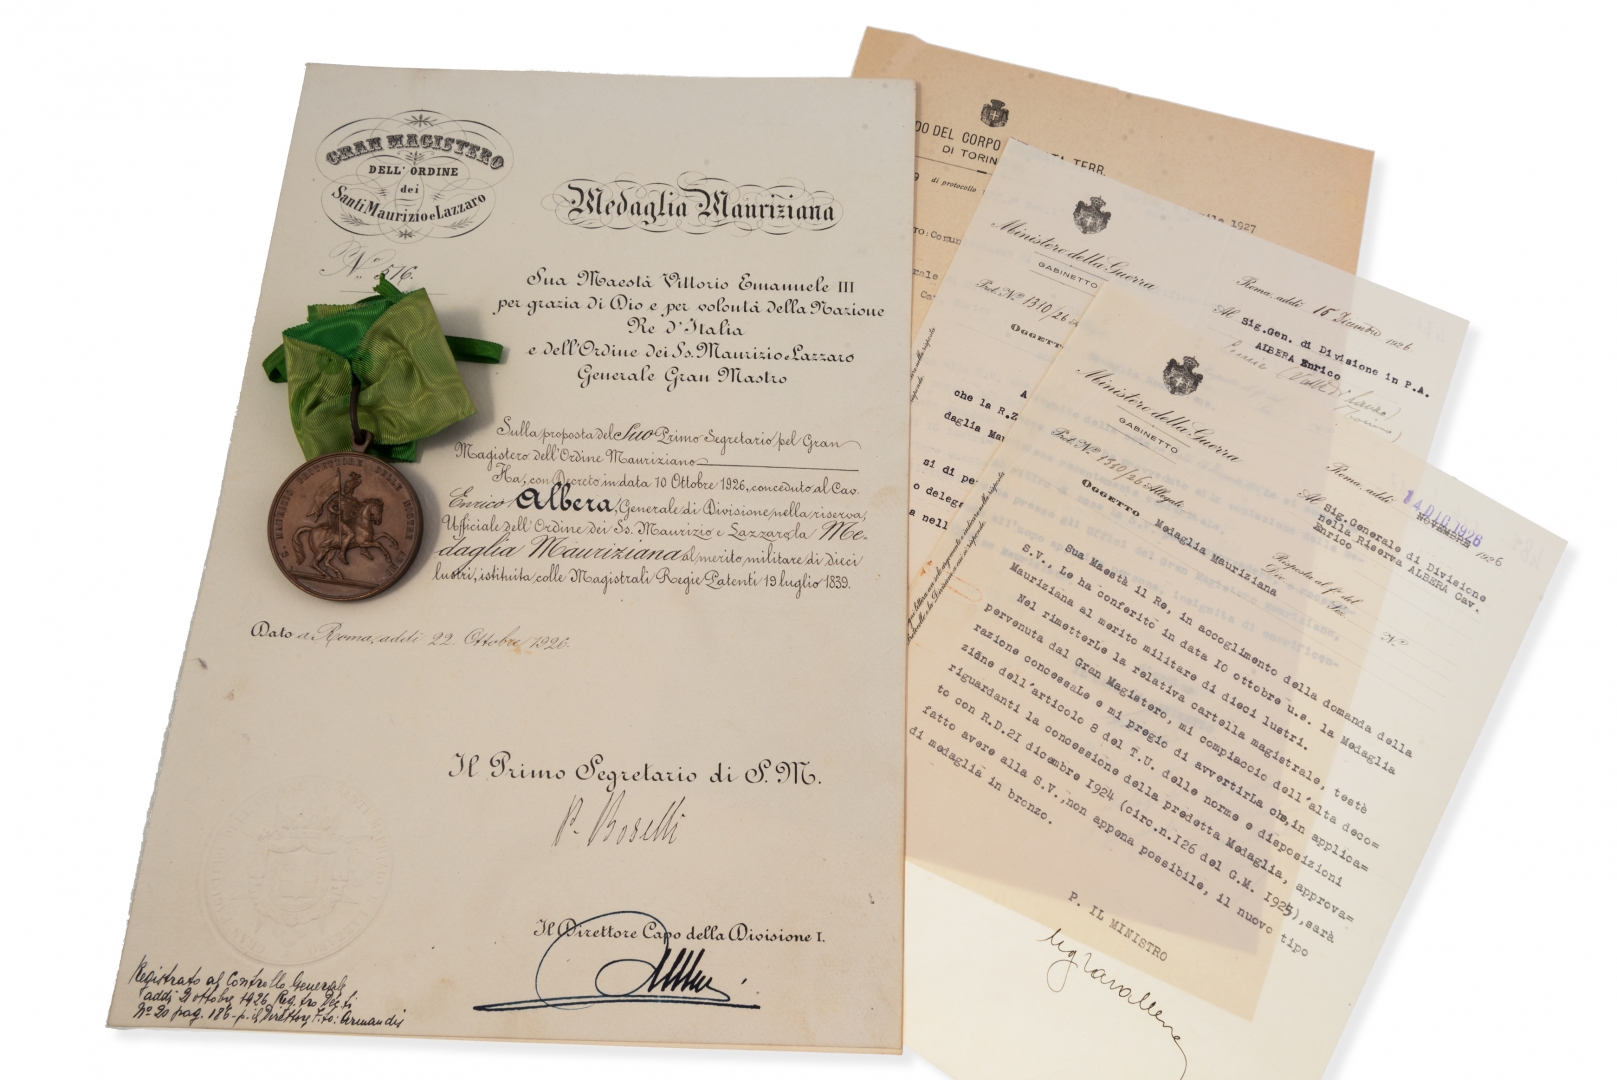 GRAN MAGISTERO
DELL'ORDINE
dei
Santi Maurizio e Lazzaro
N.° 516.
Medaglia Mauriziana
Sua Maestà Vittorio Emanuele III
per grazia di Dio e per volontà della Nazione
Re d'Italia
e dell'Ordine dei Ss. Maurizio e Lazzaro
Generale Gran Mastro
Sulla proposta del Suo Primo Segretario pel Gran
Magistero dell'Ordine Mauriziano
Ha, con Decreto in data 10 Ottobre 1926, conceduto al Cav.
Enrico Albera, Generale di Divisione nella riserva,
Ufficiale dell'Ordine dei Ss. Maurizio e Lazzaro, la Me-
daglia Mauriziana al merito militare di dieci
lustri, istituita colle Magistrali Regie Patenti 19 luglio 1839.
Dato a Roma, addì 22. Ottobre 1926.
Il Primo Segretario di S. M.
P. Boselli
Il Direttore Capo della Divisione I.
Registrato al Controllo Generale
addì 21 ottobre 1926 Reg.tro Dec.ti
N° 20 pag. 186 - p. il Direttore f.to: Armandis
S. MAURIZIO PROTETTORE DELLE NOSTRE ARMI
DO DEL CORPO
TERR.
DI TORIN
9 di protocollo
rile 1927
TO: Comun
Ministero della Guerra
GABINETTO
Prot. N.° 1310/26
OGGETTO
Roma, addì 1926
Al Sig. Gen. di Divisione in P.A.
ALBERA Enrico
A
che la R.Z
daglia Mau
si di pe
o deleg
a nell
Ministero della Guerra
GABINETTO
Prot. N.° 1310/26 Allegati
OGGETTO Medaglia Mauriziana
Roma, addì 14 DIC 1926 NOVEMBRE 1926
Al Sig. Generale di Divisione
nella Riserva ALBERA Cav.
Enrico
Risposta al f.° del
Div. Sez. N.°
Sua Maestà il Re, in accoglimento della domanda della
S.V., Le ha conferito in data IO ottobre u.s. la Medaglia
Mauriziana al merito militare di dieci lustri.
Nel rimetterLe la relativa cartella magistrale, testè
pervenuta dal Gran Magistero, mi compiaccio dell'alta deco=
razione concessaLe e mi pregio di avvertirLa che, in applica=
zione dell'articolo 8 del T.U. delle norme e disposizioni
riguardanti la concessione della predetta Medaglia, approva=
to con R.D.2I dicembre I924 (circ.n.I26 del G.M. I925), sarà
fatto avere alla S.V., non appena possibile, il nuovo tipo
di medaglia in bronzo.
P. IL MINISTRO